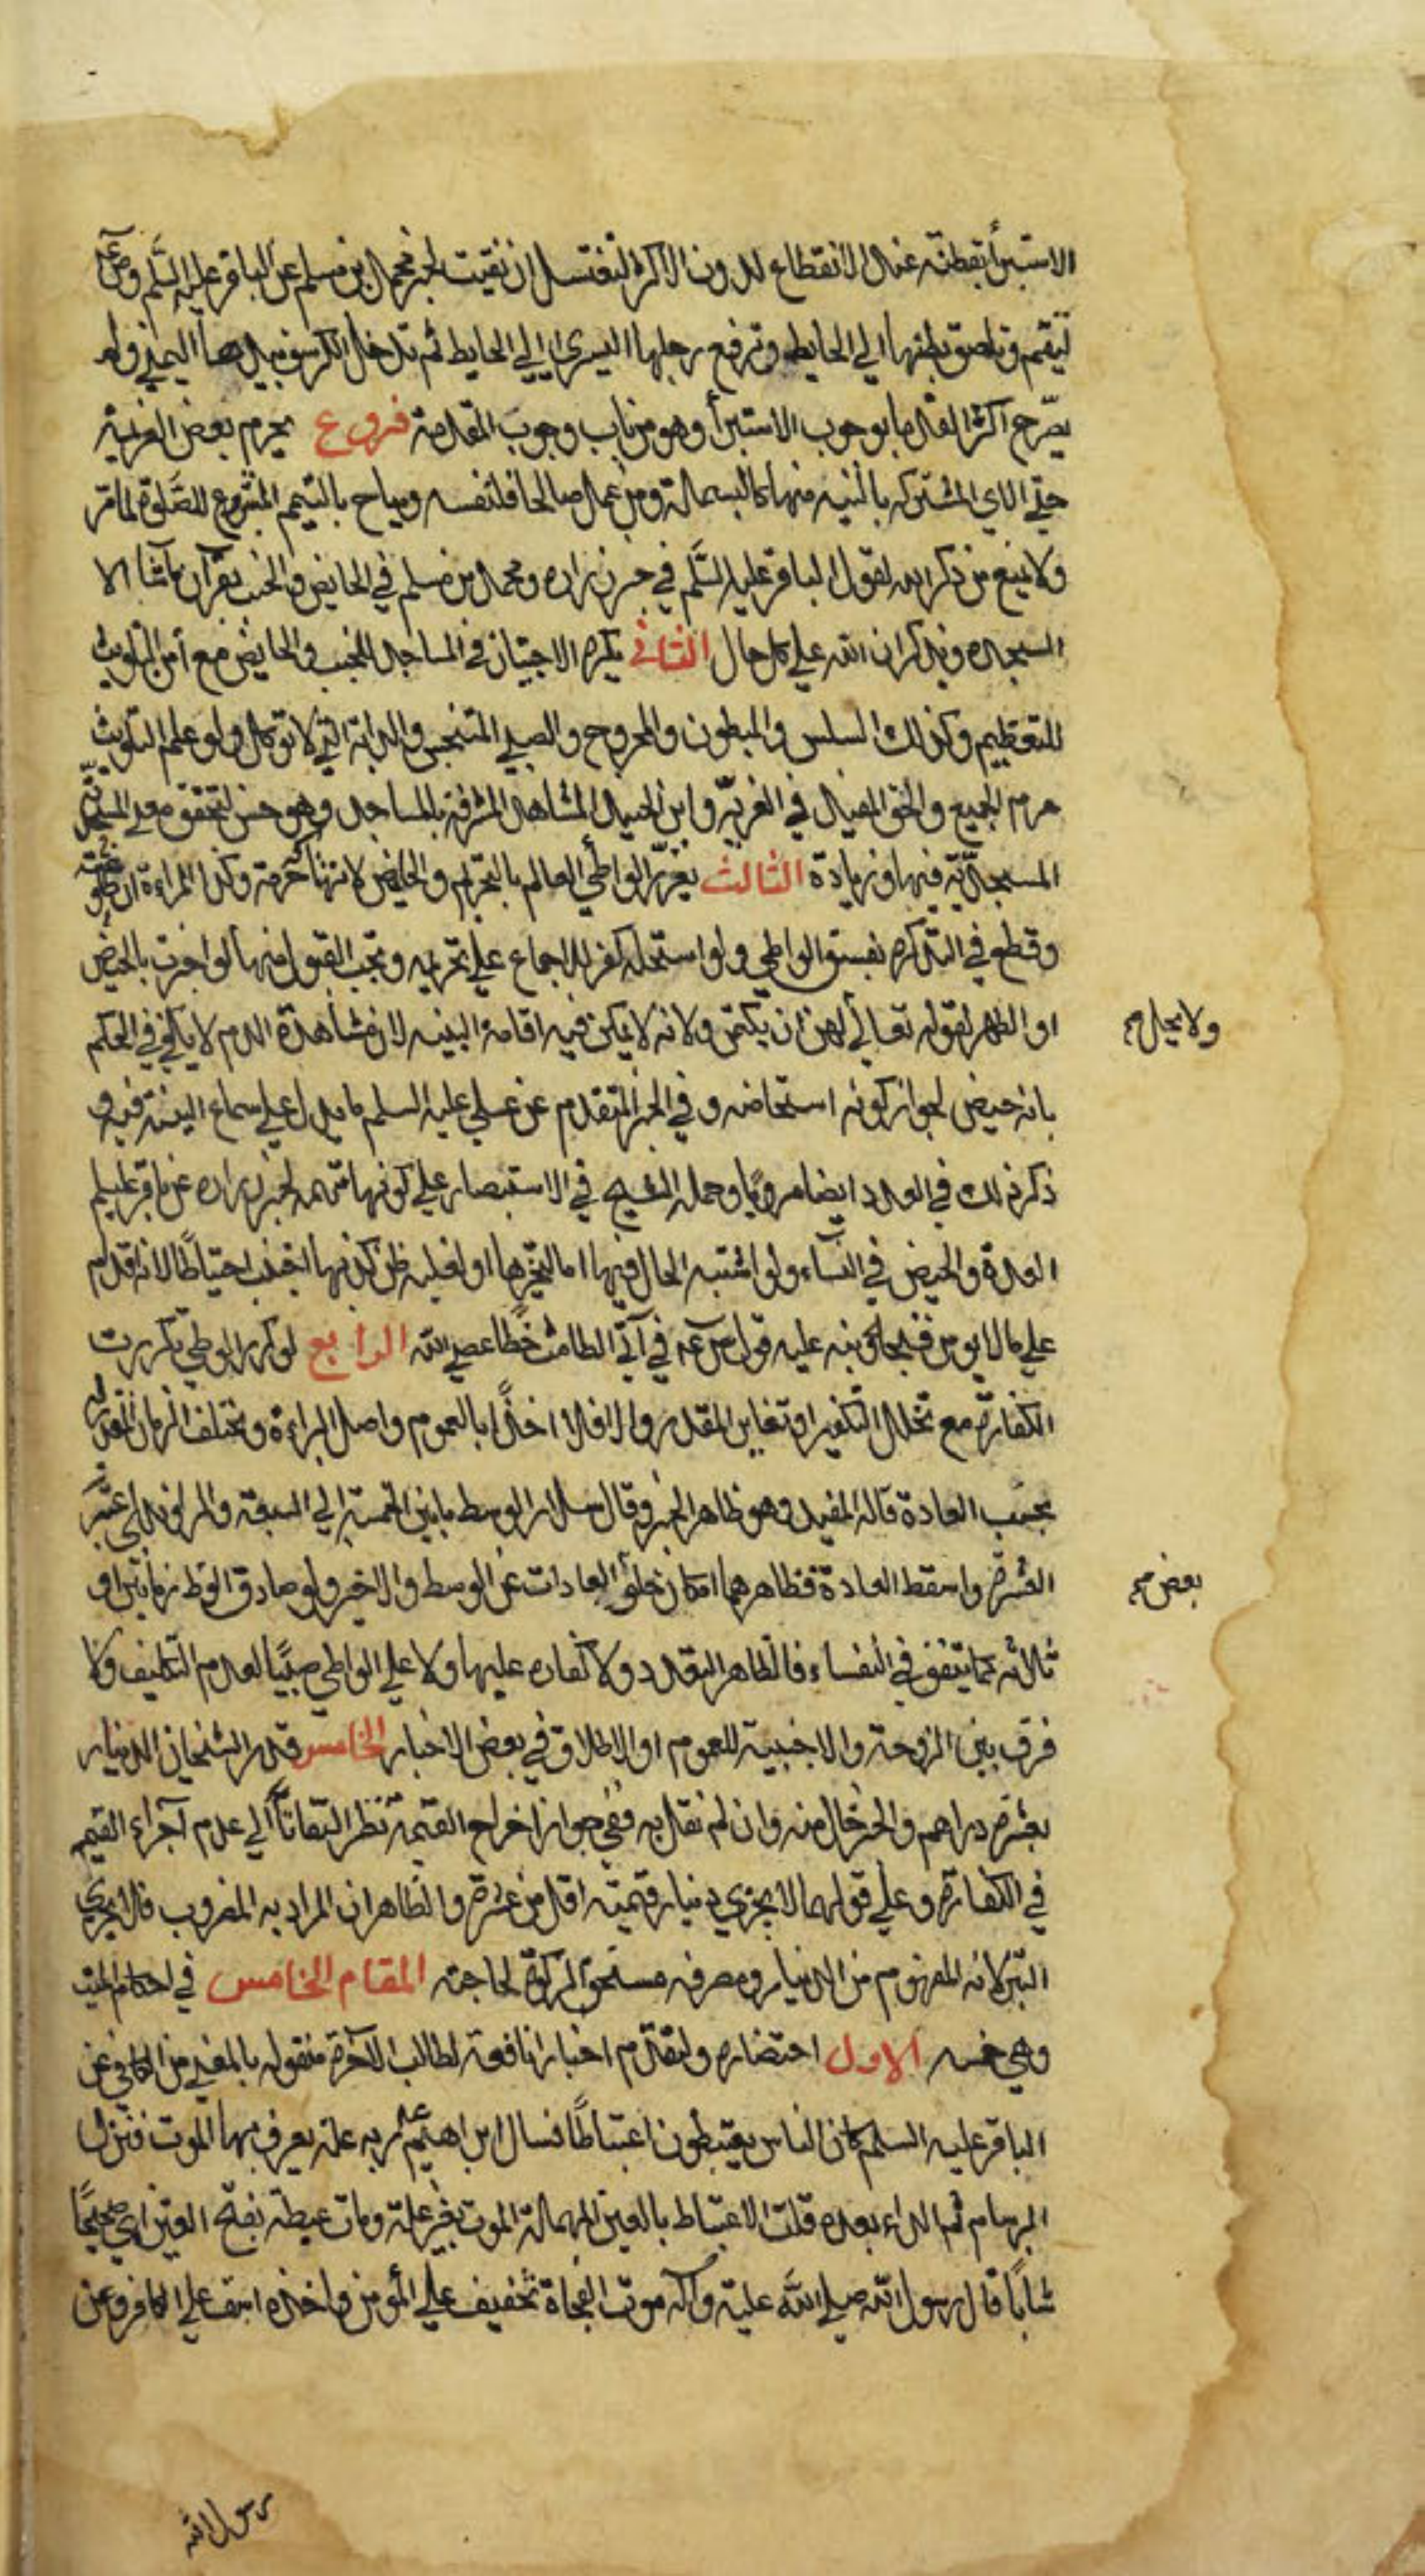 الاستبرأ بقطنة عند الانقطاع لدون الاكثر لتغتسل ان نقيت لخبر محمد بن مسلم عن الباقر عليه السلم وعن
لتقم وتلصق بطنها الي الحايط وترفع رجلها اليسري الي الحايط ثم تدخل الكرسف بيدها اليمني ولم
يصرح اكثر القدما بوجوب الاستبرأ وهو من باب وجوب المقدمة فروع يحرم بعض العزيمة
حتي الاي المشتركه بالنيه منها كالبسملة ومن عمل صالحا فلنفسه ويباح بالتيمم المشروع للصلوة لما مر
ولا يمنع من ذكر الله لقول الباقر عليه السلم في خبر زراره ومحمد بن مسلم في الحايض والجنب يقرآن ما شاا الا
السجده ويذكران الله علي كل حال الثاني يكره الاجتياز في المساجد للجنب والحايض مع أمن التلويث
للتعظيم وكذلك السلس والمبطون والمجروح والصبي المتنجس والدابة التي لا توكل ولو علم التلويث
حرم الجميع والحق المفيد في الغرية وابن الجنيد المشاهد المشرفة بالمساجد وهو حسن لتحقق معني
المسجدية فيها وزيادة الثالث يعزر الواطي العالم بالتحريم والحايض لانتهاك حرمته وكذا المراءة ان طاوعته
وقطع في التذكره بفسق الواطي ولو استحله كفر للاجماع علي تحريمه ويجب القبول منها لو اخبرت بالحيض
او الطهر لقوله تعالي لهن ان يكتمن ولانه لا يمكن فيه اقامة البينه لان مشاهدة الدم لا يكفي في الحكم
ولا يحل
بانه حيض لجواز كونه استحاضه وفي الخبر المتقدم عن علي عليه السلم ما يدل علي سماع البينة فيه و
ذكر ذلك في العدد ايضا مرويا وحمله الشيخ في الاستبصار علي كونها متهمه لخبر زراره عن باقر عليلم
العدة والحيض في النساء ولو اشتبه الحال فيها اما لتحيرها او لغلبه ظن كذبها اجتنب احتياطا لانه اقدام
علي ما لا يومن قبحه وقد نبه عليه قول ص عم في آتي الطامث خطأ عصي الله الرابع لو كرر الوطي تكررت
الكفارة مع تخلل التكفير او تغاير المقدر والا فلا اخذا بالعموم واصل البراءة ويختلف الزمان
بحسب العادة قاله المفيد وهو ظاهر الخبر وقال سلار الوسط ما بين الخمسة الي السبعة والراوندي اعتبر
العشرة واسقط العادة فظاهرهما امكان خلو العادات عن الوسط والاخير ولو صادق الوطء زمانين او
بعض
ثلاثه كما يتفق في النفساء فالظاهر التعدد ولا كفاره عليها ولا علي الواطي صبيا لعدم التكليف ولا
فرق بين الزوجة والاجنبية للعموم او الاطلاق في بعض الاخبار الخامس قدر الشيخان الدينار
بعشرة دراهم والخبر خال منه وان لم نقل به ففي جواز اخراج القيمة نظر التفاتا الي عدم آجزاء القيم
في الكفارة وعلي قولهما لا يجزي دينار قيمته اقل من عشرة والظاهر ان المراد به المضروب فلا يجزي
التبر لانه المفهوم من الدينار ومصرفه مستحق الزكوة لحاجته المقام الخامس في احكام الميت
وهي خمسه الاول احتضاره ولنقدم اخبارا نافعة لطالب الآخرة منقوله بالمعني من الكافي عن
الباقر عليه السلم كان الناس يعتبطون اعتباطا فسال ابراهيم عم ربه علة يعرف بها الموت فنزل
البرسام ثم الداء بعده قلت الاعتباط بالعين المهملة الموت بغير علة ومات عبطة بفتح العين اي صحيحا
شابا قال رسول الله صلي الله عليه وآله موت الفجاة تخفيف علي المؤمن واخذه اسف علي الكافر وعن
رسول الله